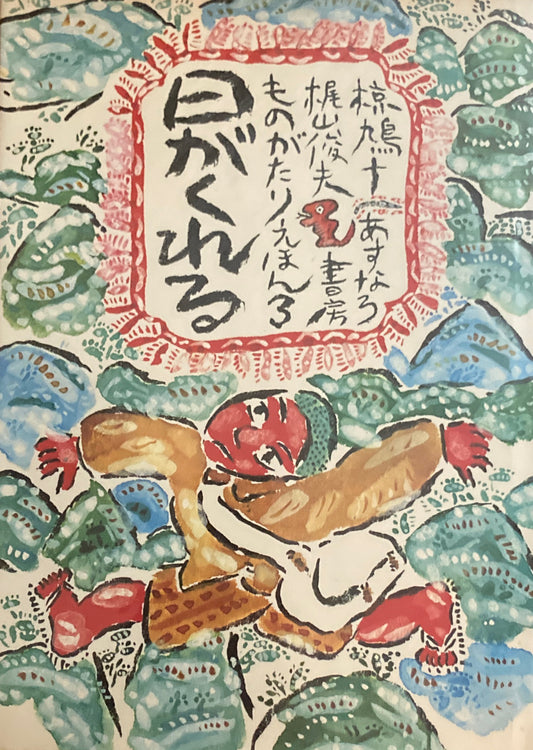 椋鳩十 あすなろ
梶山俊夫 書房
ものがたりえほん3
日がくれる